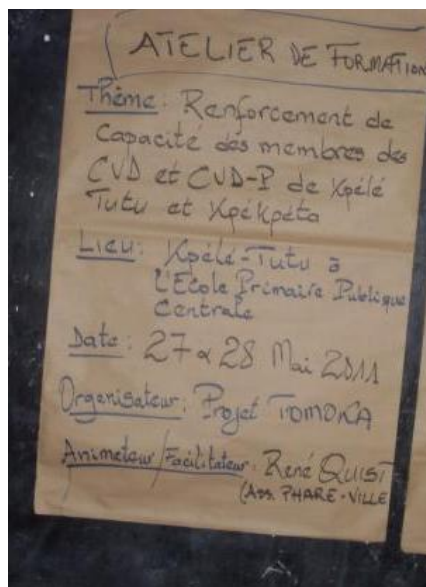 ATELIER DE FORMATION
Thème: Renforcement de
Capacité des membres des
CVD et CVD-P de Kpélé
Tutu et Kpékpéta
Lieu: Kpélé-Tutu à
l'Ecole Primaire Publique
Centrale
Date: 27 & 28 Mai 2011
Organisateur: Projet TOMOKA
Animateur/Facilitateur: René QUIST
(Ass. PHARE-VILLE